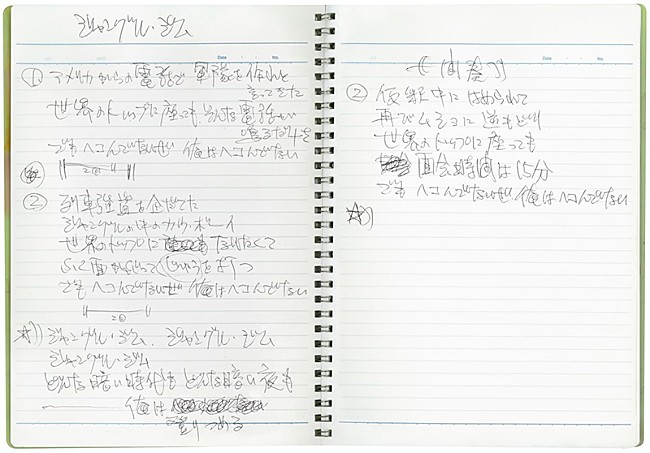 ジャングル・ジム
① アメリカからの電話で 軍隊を作れと
言ってきた
世界のトップに座っても そんな電話が
鳴るだけさ
でも ヘコんでないぜ 俺はヘコんでない
②
② 列車強盗を企てた
ジャングルの中のカウボーイ
世界のトップに なれなくて
でも ヘコんでないぜ 俺はヘコんでない
②
☆)) ジャングル・ジム、ジャングル・ジム
ジャングル・ジム
どんな暗い時代も どんな暗い夜も
俺は
登りつめる
Date
② 仮釈中に はめられて
再びムショに逆もどり
世界のトップに座っても
面会時間は15分
でも ヘコんでないぜ 俺はヘコんでない
☆))